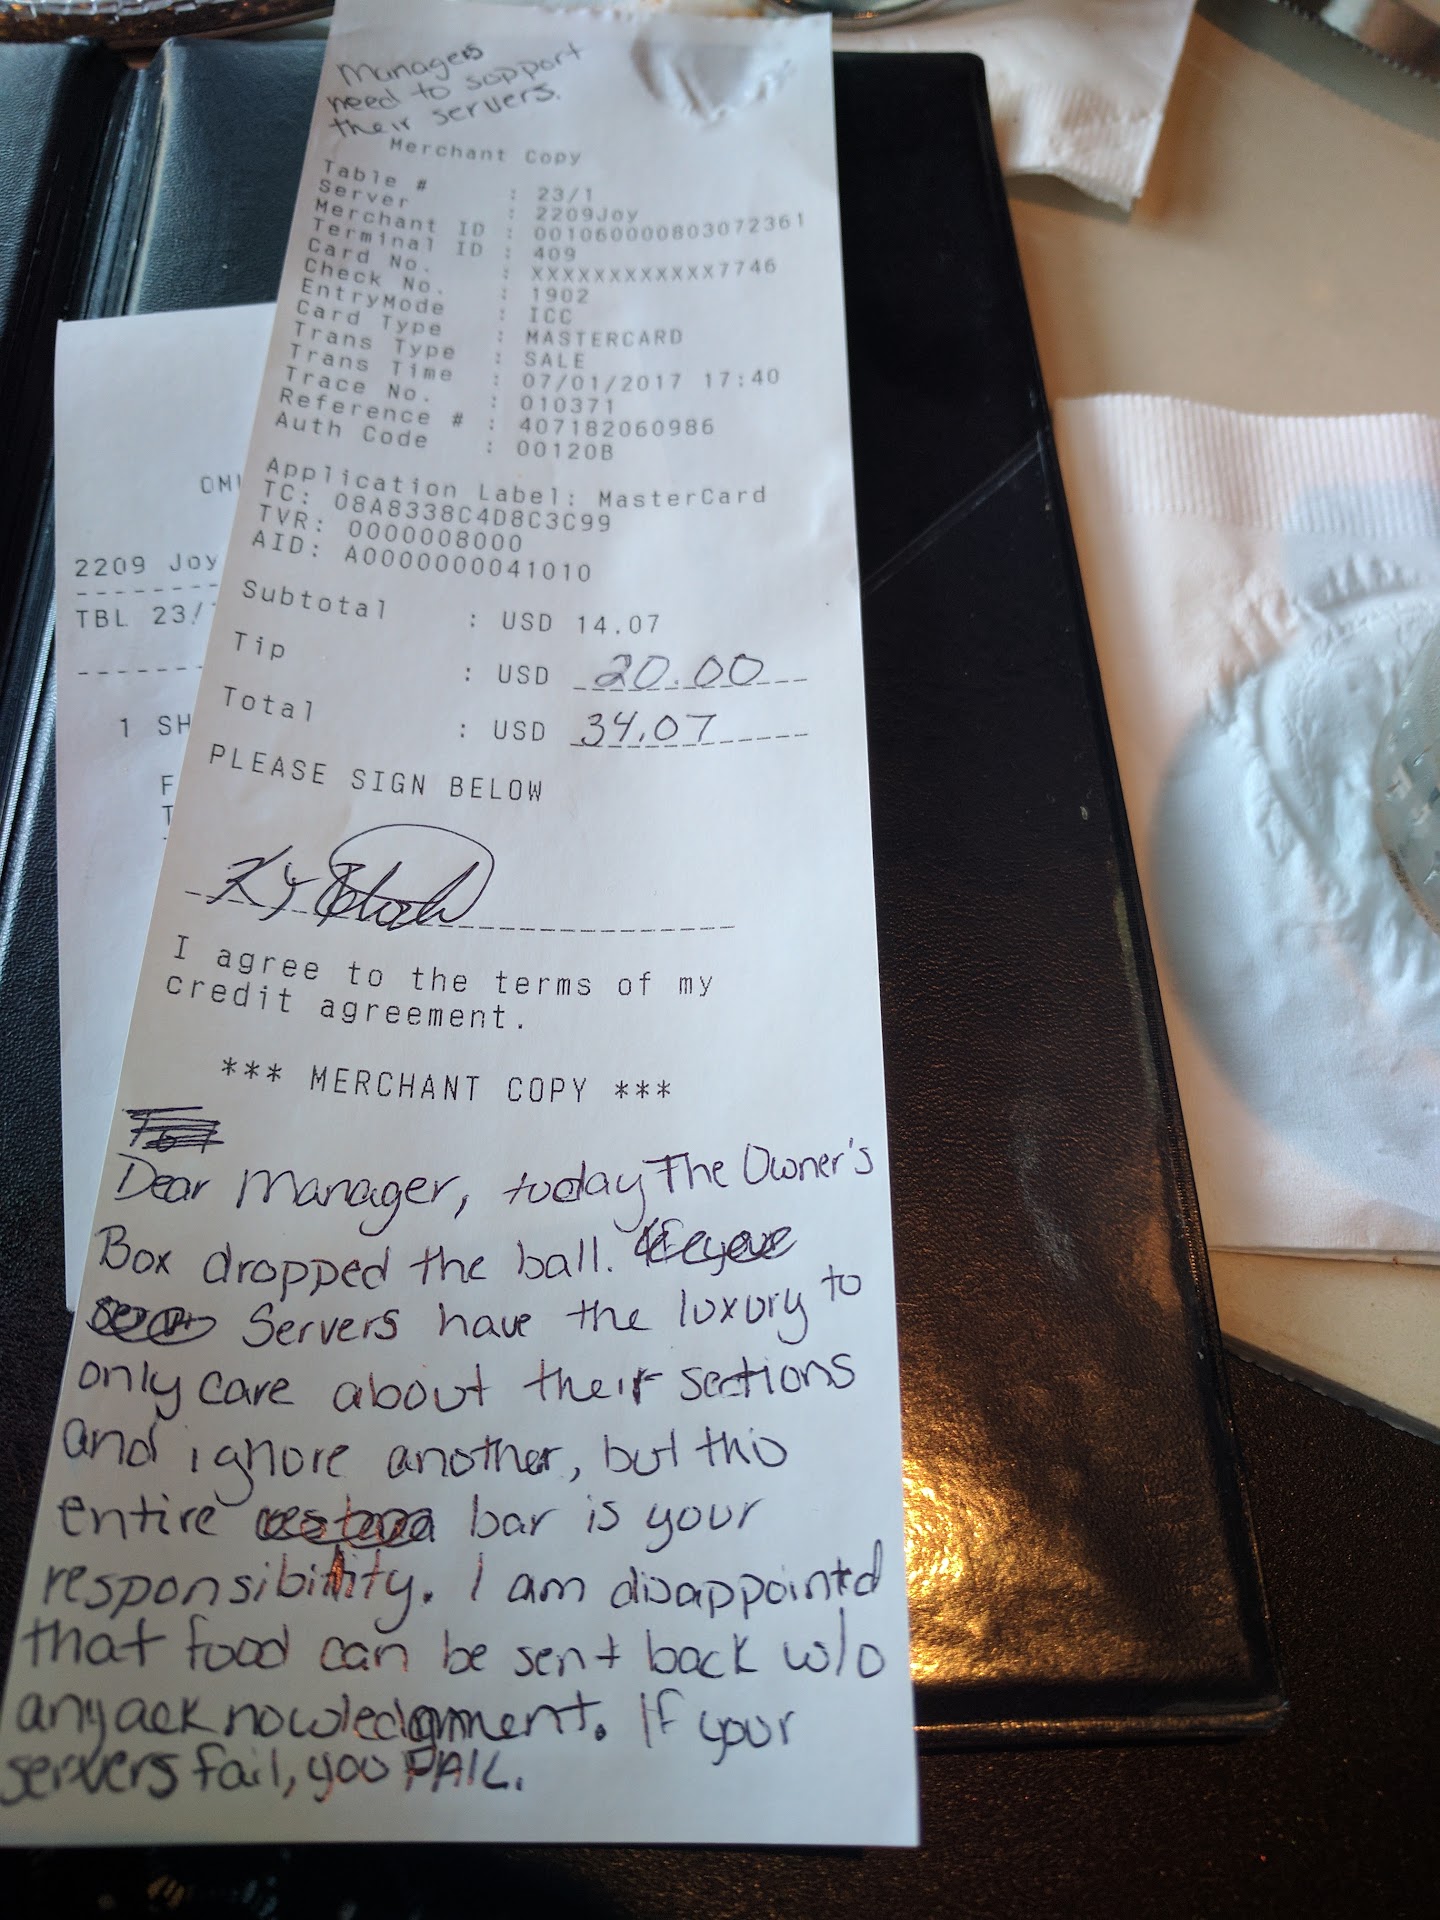 Managers
need to support
their servers.
Merchant Copy
Table # : 23/1
Server : 2209Joy
Merchant ID : 001060000803072361
Terminal ID : 409
Card No. : XXXXXXXXXXXX7746
Check No. : 1902
EntryMode : ICC
Card Type : MASTERCARD
Trans Type : SALE
Trans Time : 07/01/2017 17:40
Trace No. : 010371
Reference # : 407182060986
Auth Code : 00120B
Application Label: MasterCard
TC: 08A8338C4D8C3C99
TVR: 0000008000
AID: A0000000041010
Subtotal : USD 14.07
Tip : USD 20.00
Total : USD 34.07
PLEASE SIGN BELOW
I agree to the terms of my
credit agreement.
*** MERCHANT COPY ***
Dear Manager, today The Owner's
Box dropped the ball.
Servers have the luxury to
only care about their sections
and ignore another, but this
entire bar is your
responsibility. I am disappointed
that food can be sent back w/o
any acknowledgment. If your
servers fail, you FAIL.
2209 Joy
TBL 23/
1 SH